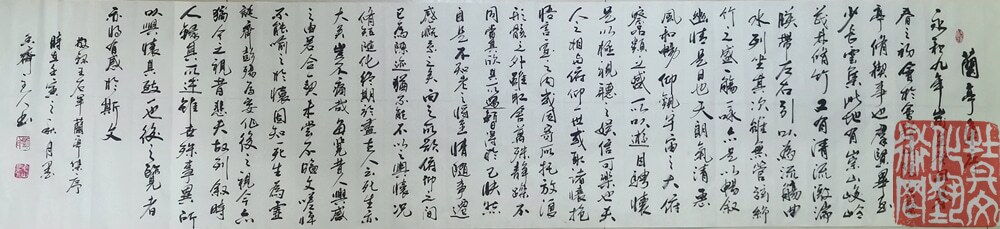 蘭亭
永和九年
春之初會於會
亭脩禊事也群賢畢至
少長雲集此地有崇山峻嶺
茂林脩竹又有清流激湍
映帶左右引以為流觴曲
水列坐其次雖無管弦絲
竹之盛一觴一詠亦足以暢叙
幽情是日也天朗氣清惠
風和暢仰觀宇宙之大俯
察品類之盛所以遊目騁懷
足以極視聽之娛信可樂也夫
人之相與俯仰一世或取諸懷抱
悟言一室之內或因寄所托放浪
形骸之外雖取舍萬殊靜躁不
同當其欣於所遇暫得於己快然
自足不知老之將至情隨事遷
感慨系之矣向之所欣俯仰之間
已為陳迹猶不能不以之興懷況
脩短隨化終期於盡古人云死生亦
大矣豈不痛哉每覽昔人興感
之由若合一契未嘗不臨文嗟悼
不能喻之於懷固知一死生為虛
誕齊彭殤為妄作後之視今亦
猶今之視昔悲夫故列叙時
人錄其所述雖世殊事異所
以興懷其致一也後之覽者
亦將有感於斯文
敬録王右軍蘭亭集序
齋主人書